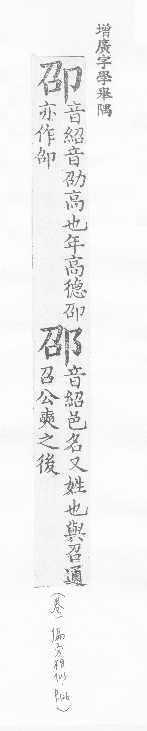 增廣字學舉隅
卲
音紹音劭高也年高德卲
亦作
邵
音紹邑名又姓也與召通
召公奭之後
(卷一 偏旁相似